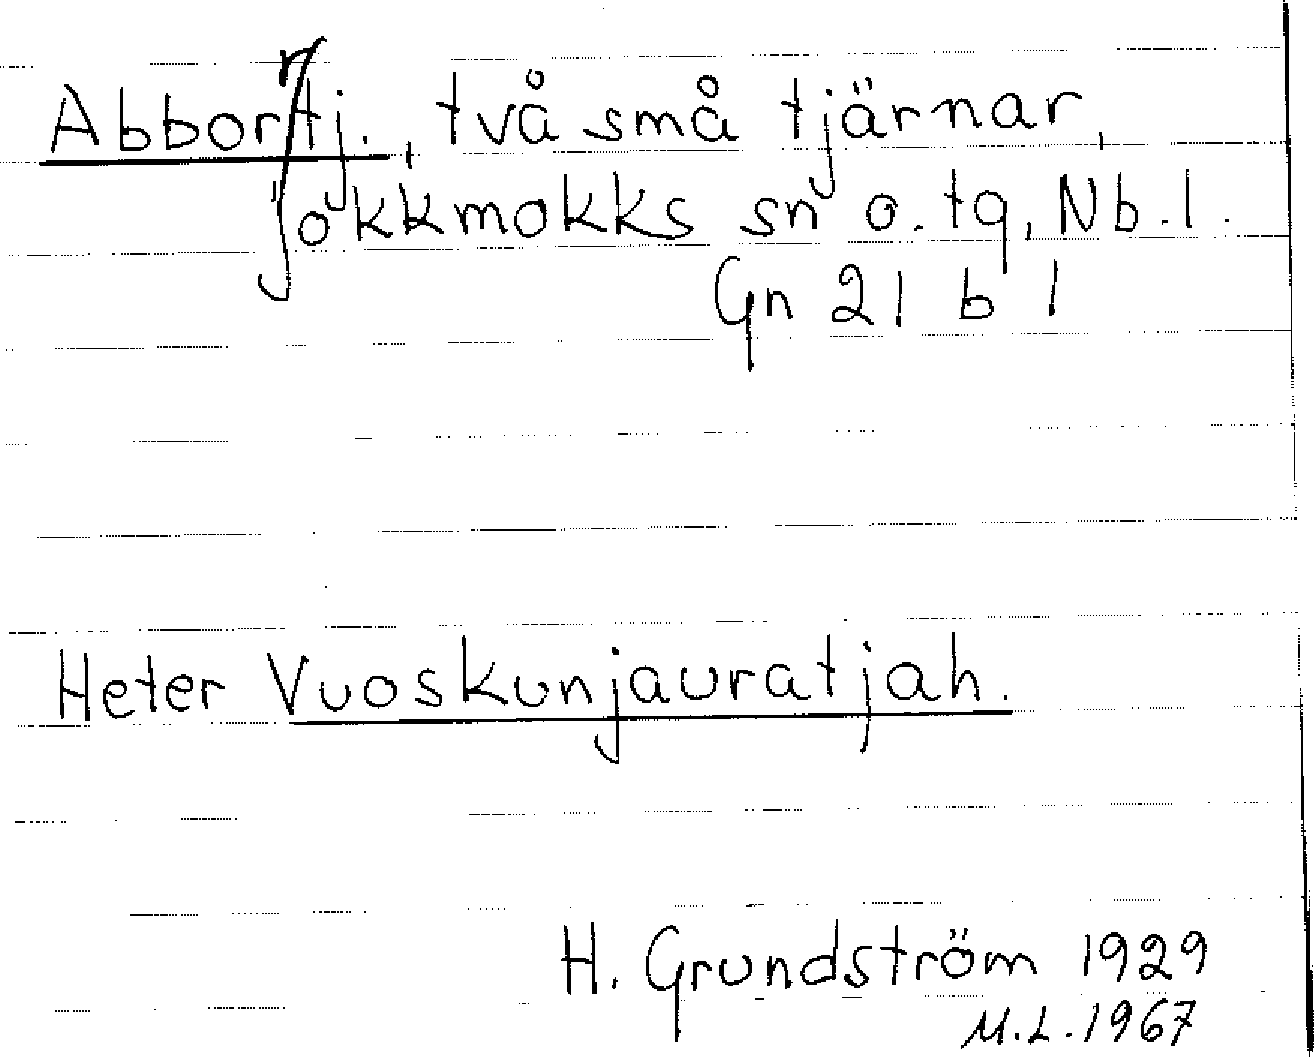 Abborrtj., två små tjärnar,
Jokkmokks sn o. tg, Nb. l.
Gn 21 b 1
Heter Vuoskunjauratjah.
H. Grundström 1929
M.L. 1967